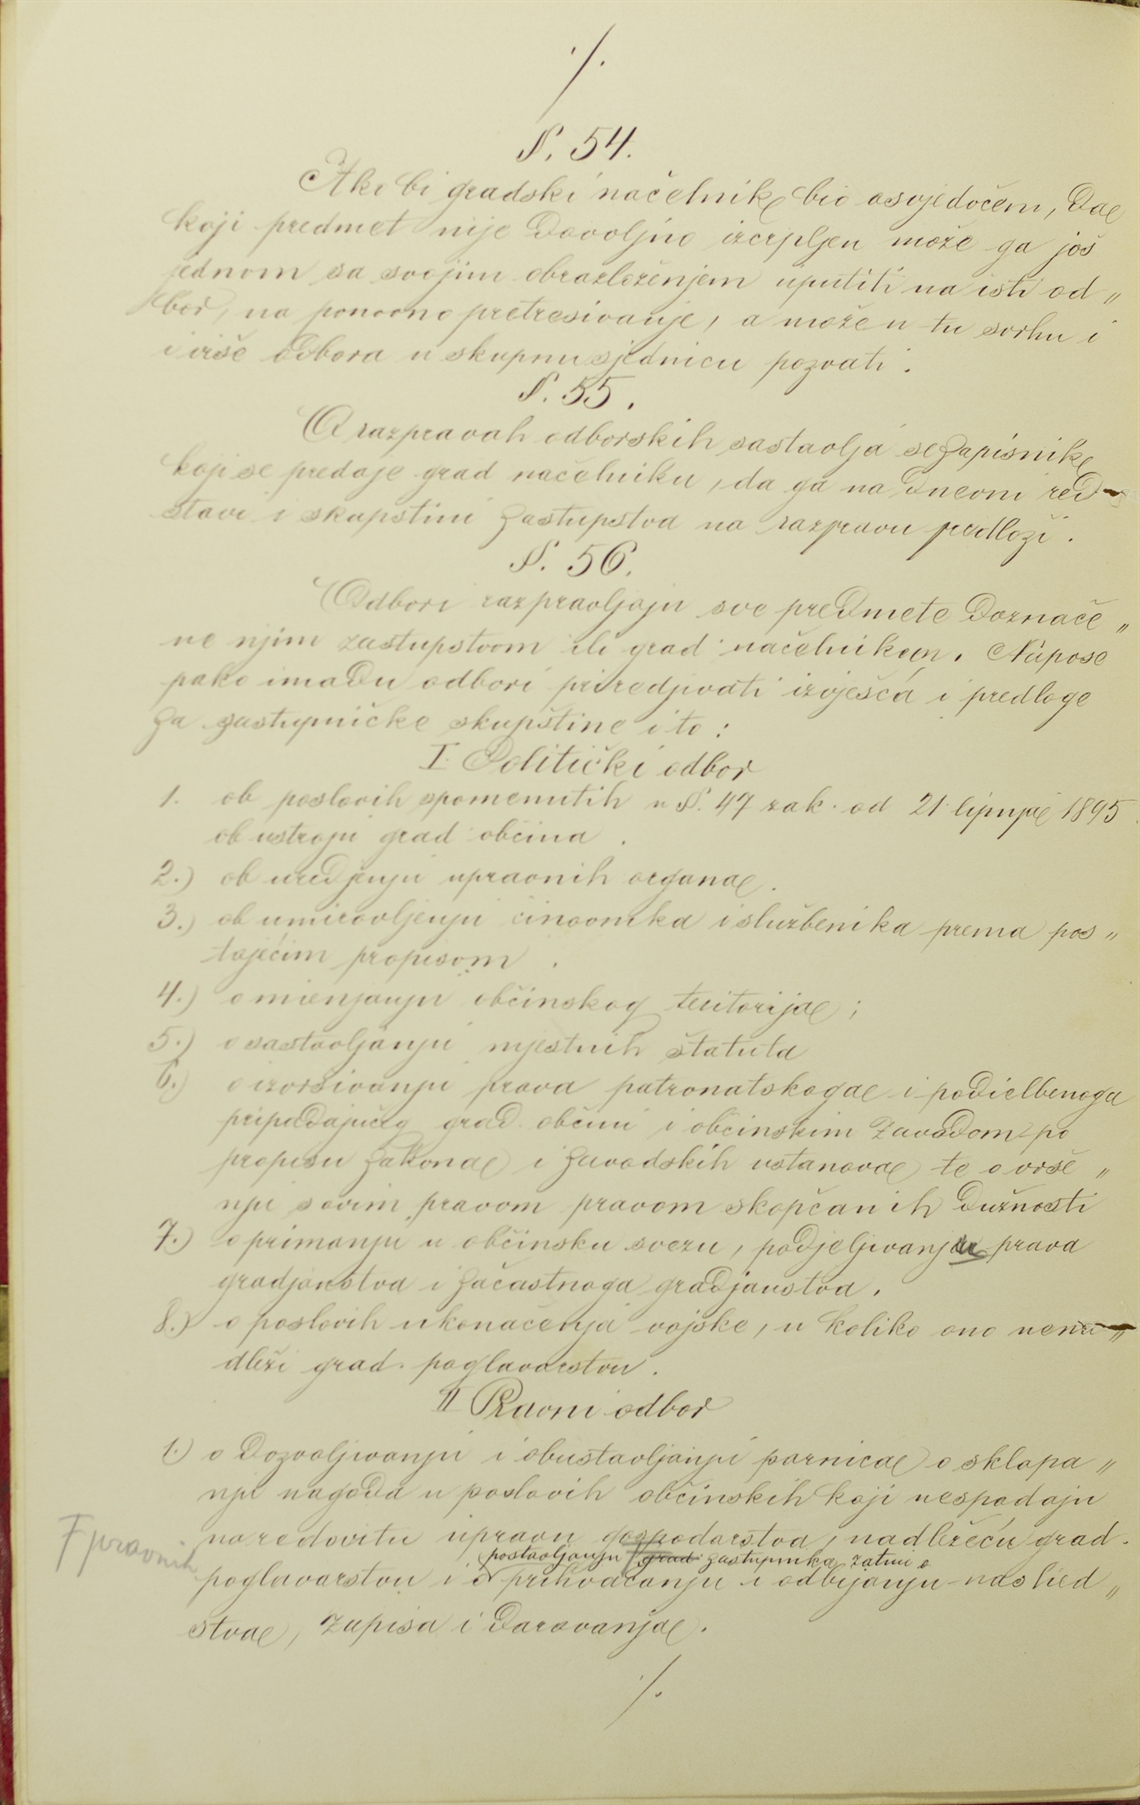 ./.
§. 54.
Ako bi gradski načelnik bio osvjedočen, da
koji predmet nije dovoljno izcrpljen može ga još
jednom sa svojim obrazloženjem uputiti na isti od„
bor, na ponovno pretresivanje, a može u tu svrhu i
i više odbora u skupnu sjednicu pozvati.
§. 55.
O razpravah odborskih sastavlja se zapisnik
koji se predaje grad načelniku, da ga na dnevni red
stavi i skupštini zastupstva na razpravu predloži.
§. 56.
Odbori razpravljaju sve predmete doznače„
ne njim zastupstvom ili grad načelnikom. Napose
pako imadu odbori priredjivati izvješća i predloge
za zastupničke skupštine i to:
I. Politički odbor
1. ob poslovih spomenutih u §. 47 zak. od 21 lipnja 1895
ob ustroju grad občina.
2.) ob uredjenju upravnih organa.
3.) ob umirovljenju činovnika i službenika prema pos„
tojećim propisom.
4.) o mienjanju občinskog teritorija;
5.) o sastavljanju mjestnih štatuta
6.) o izvršivanju prava patronatskoga i podielbenoga
pripadajućeg grad. občini i občinskim zavodom po
propisu zakona i zavodskih ustanova te o vrše„
nju s ovim pravom pravom skopčanih dužnosti
7.) o primanju u občinsku svezu, podjeljivanju prava
gradjanstva i začastnoga gradjanstva.
8.) o poslovih ukonačenja vojske, u koliko ono nena„
dleži grad. poglavarstvu.
II Pravni odbor
1.) o dozvoljivanju i obustavljanju parnica o sklapa„
nju nagoda u poslovih občinskih koji nespadaju
na redovitu upravu gospodarstva, nadležeću grad.
postavljanju grad zastupnika zatim o
F pravnih
poglavarstvu i o prihvaćanju i odbijanju naslied„
stva, zapisa i darovanja.
./.